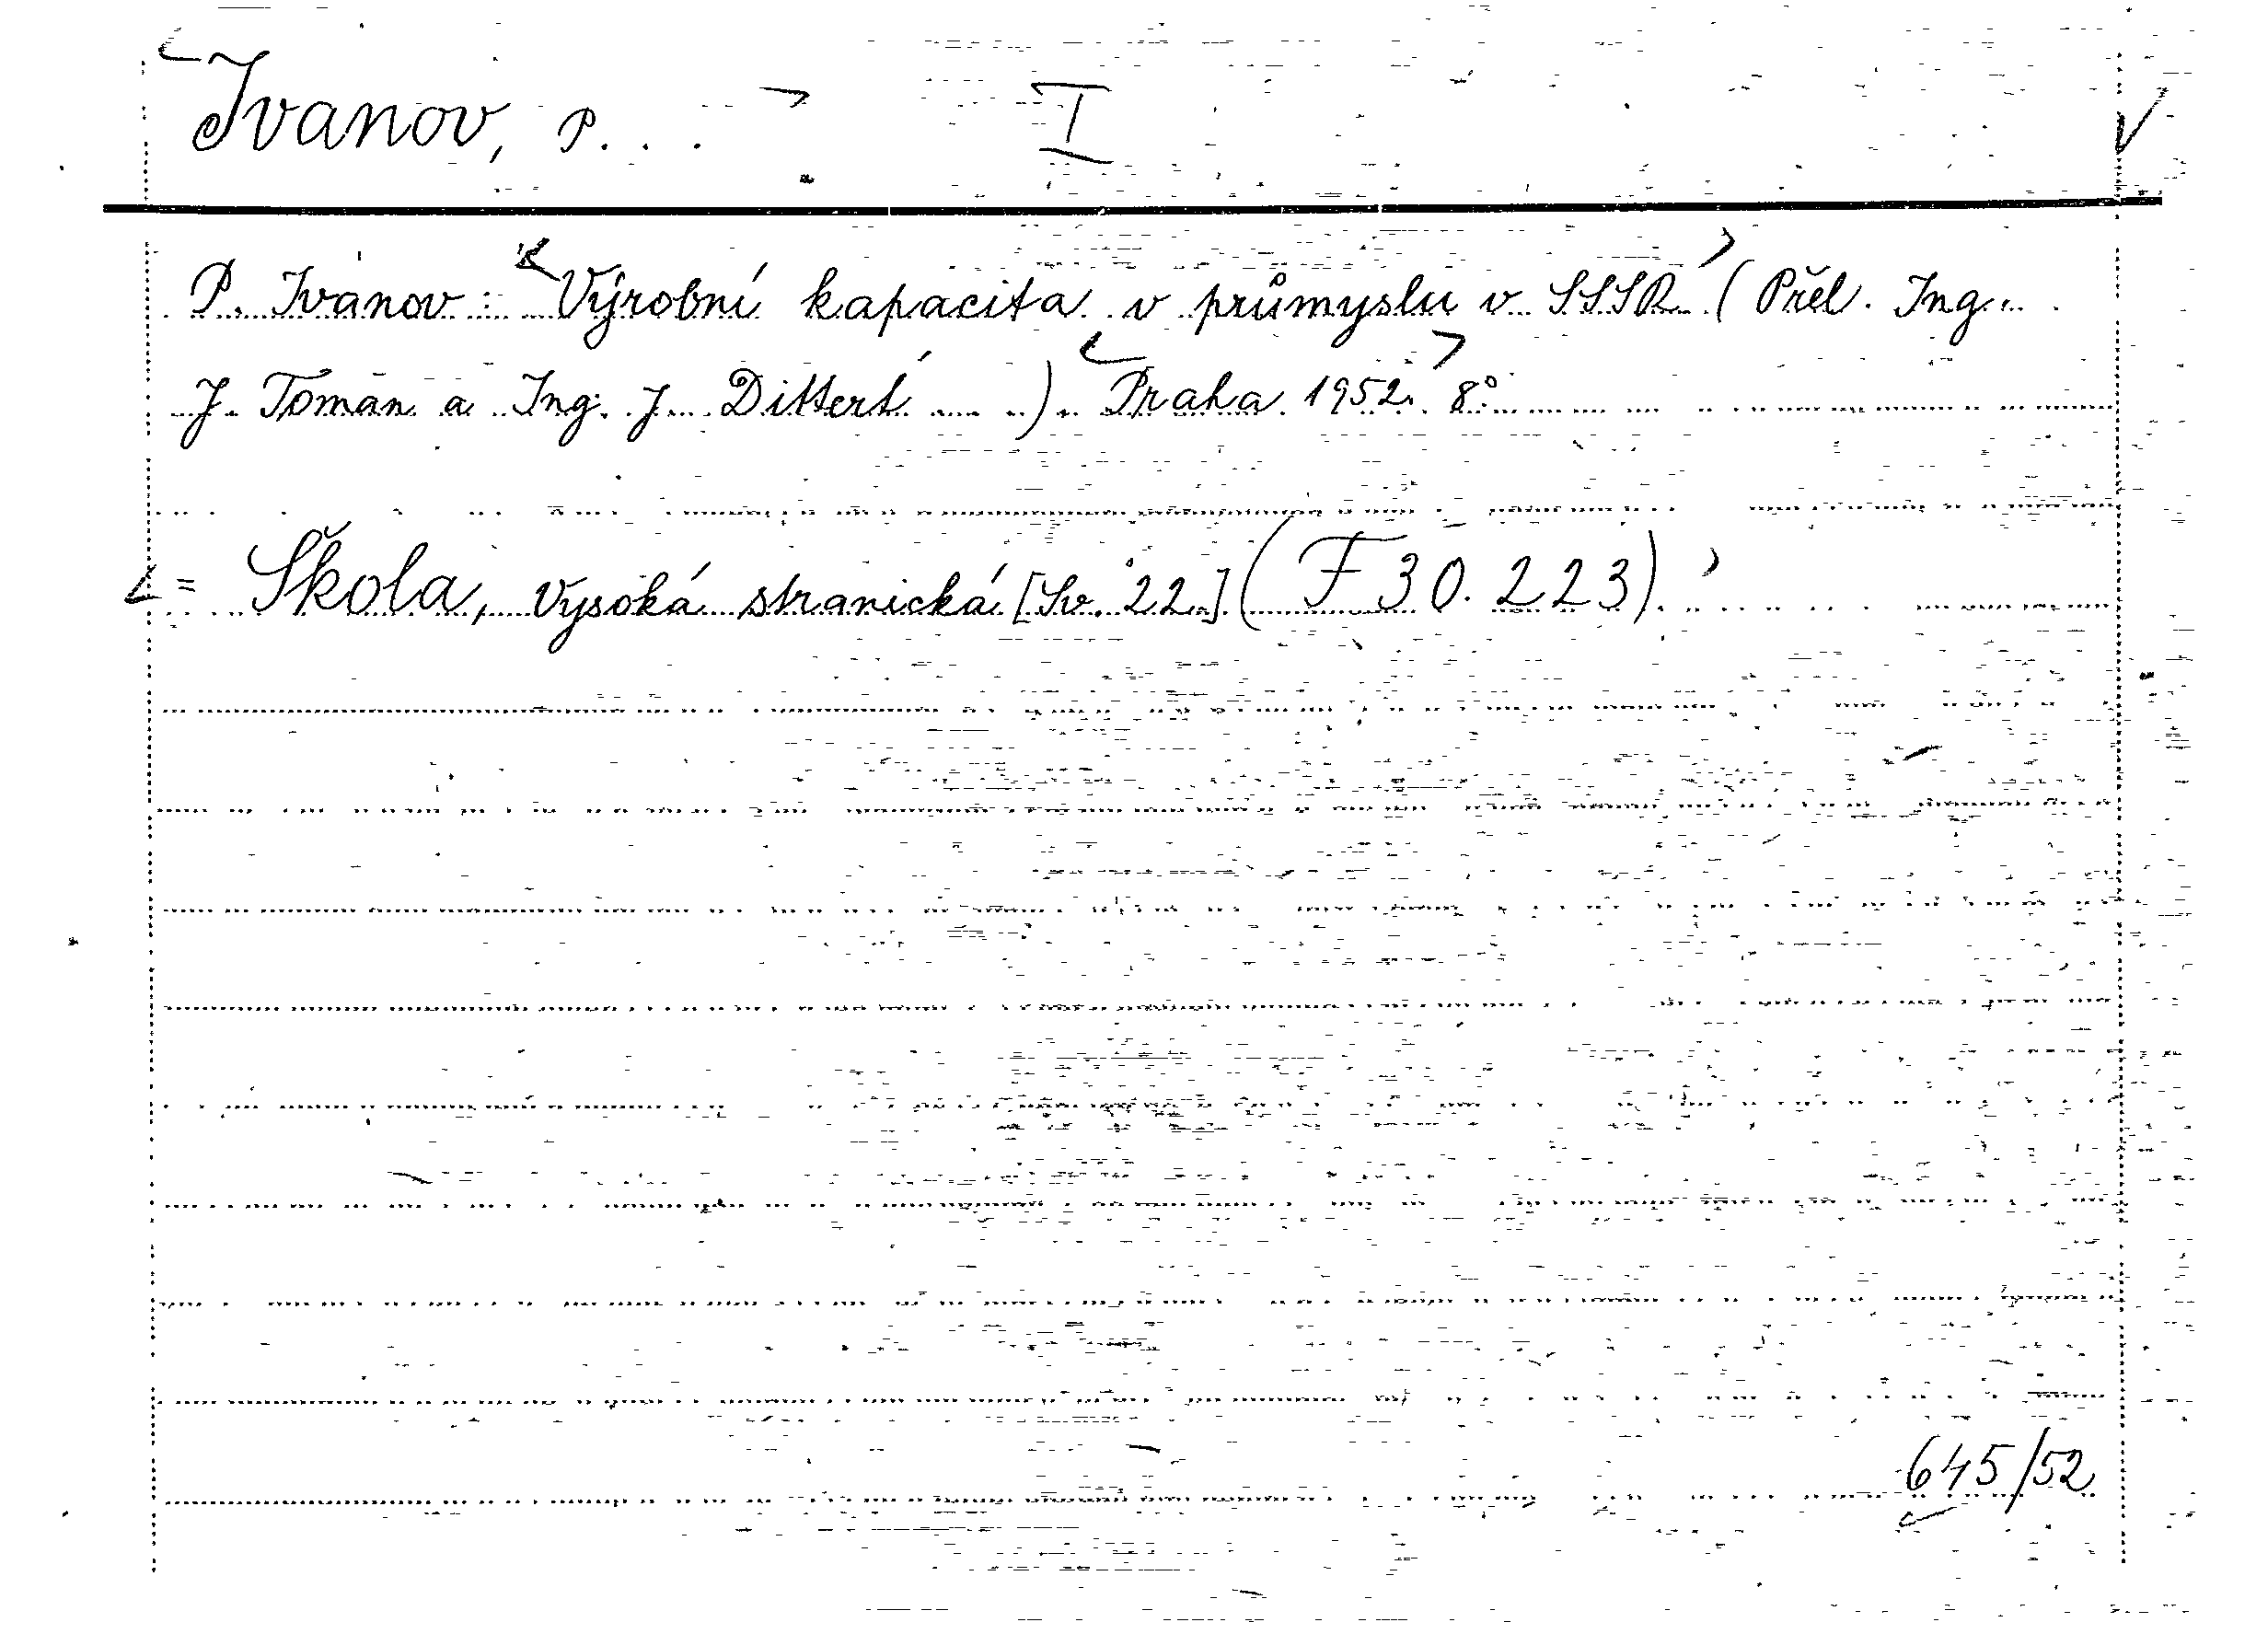 Ivanov, P. . . I
P. Ivanov: Výrobní kapacita v průmyslu v SSSR (Přel. Ing.
J. Toman a Ing. J. Dittert). Praha 1952. 8°
= Škola, vysoká stranická [Sv. 22.] (F 30.223).
645/52